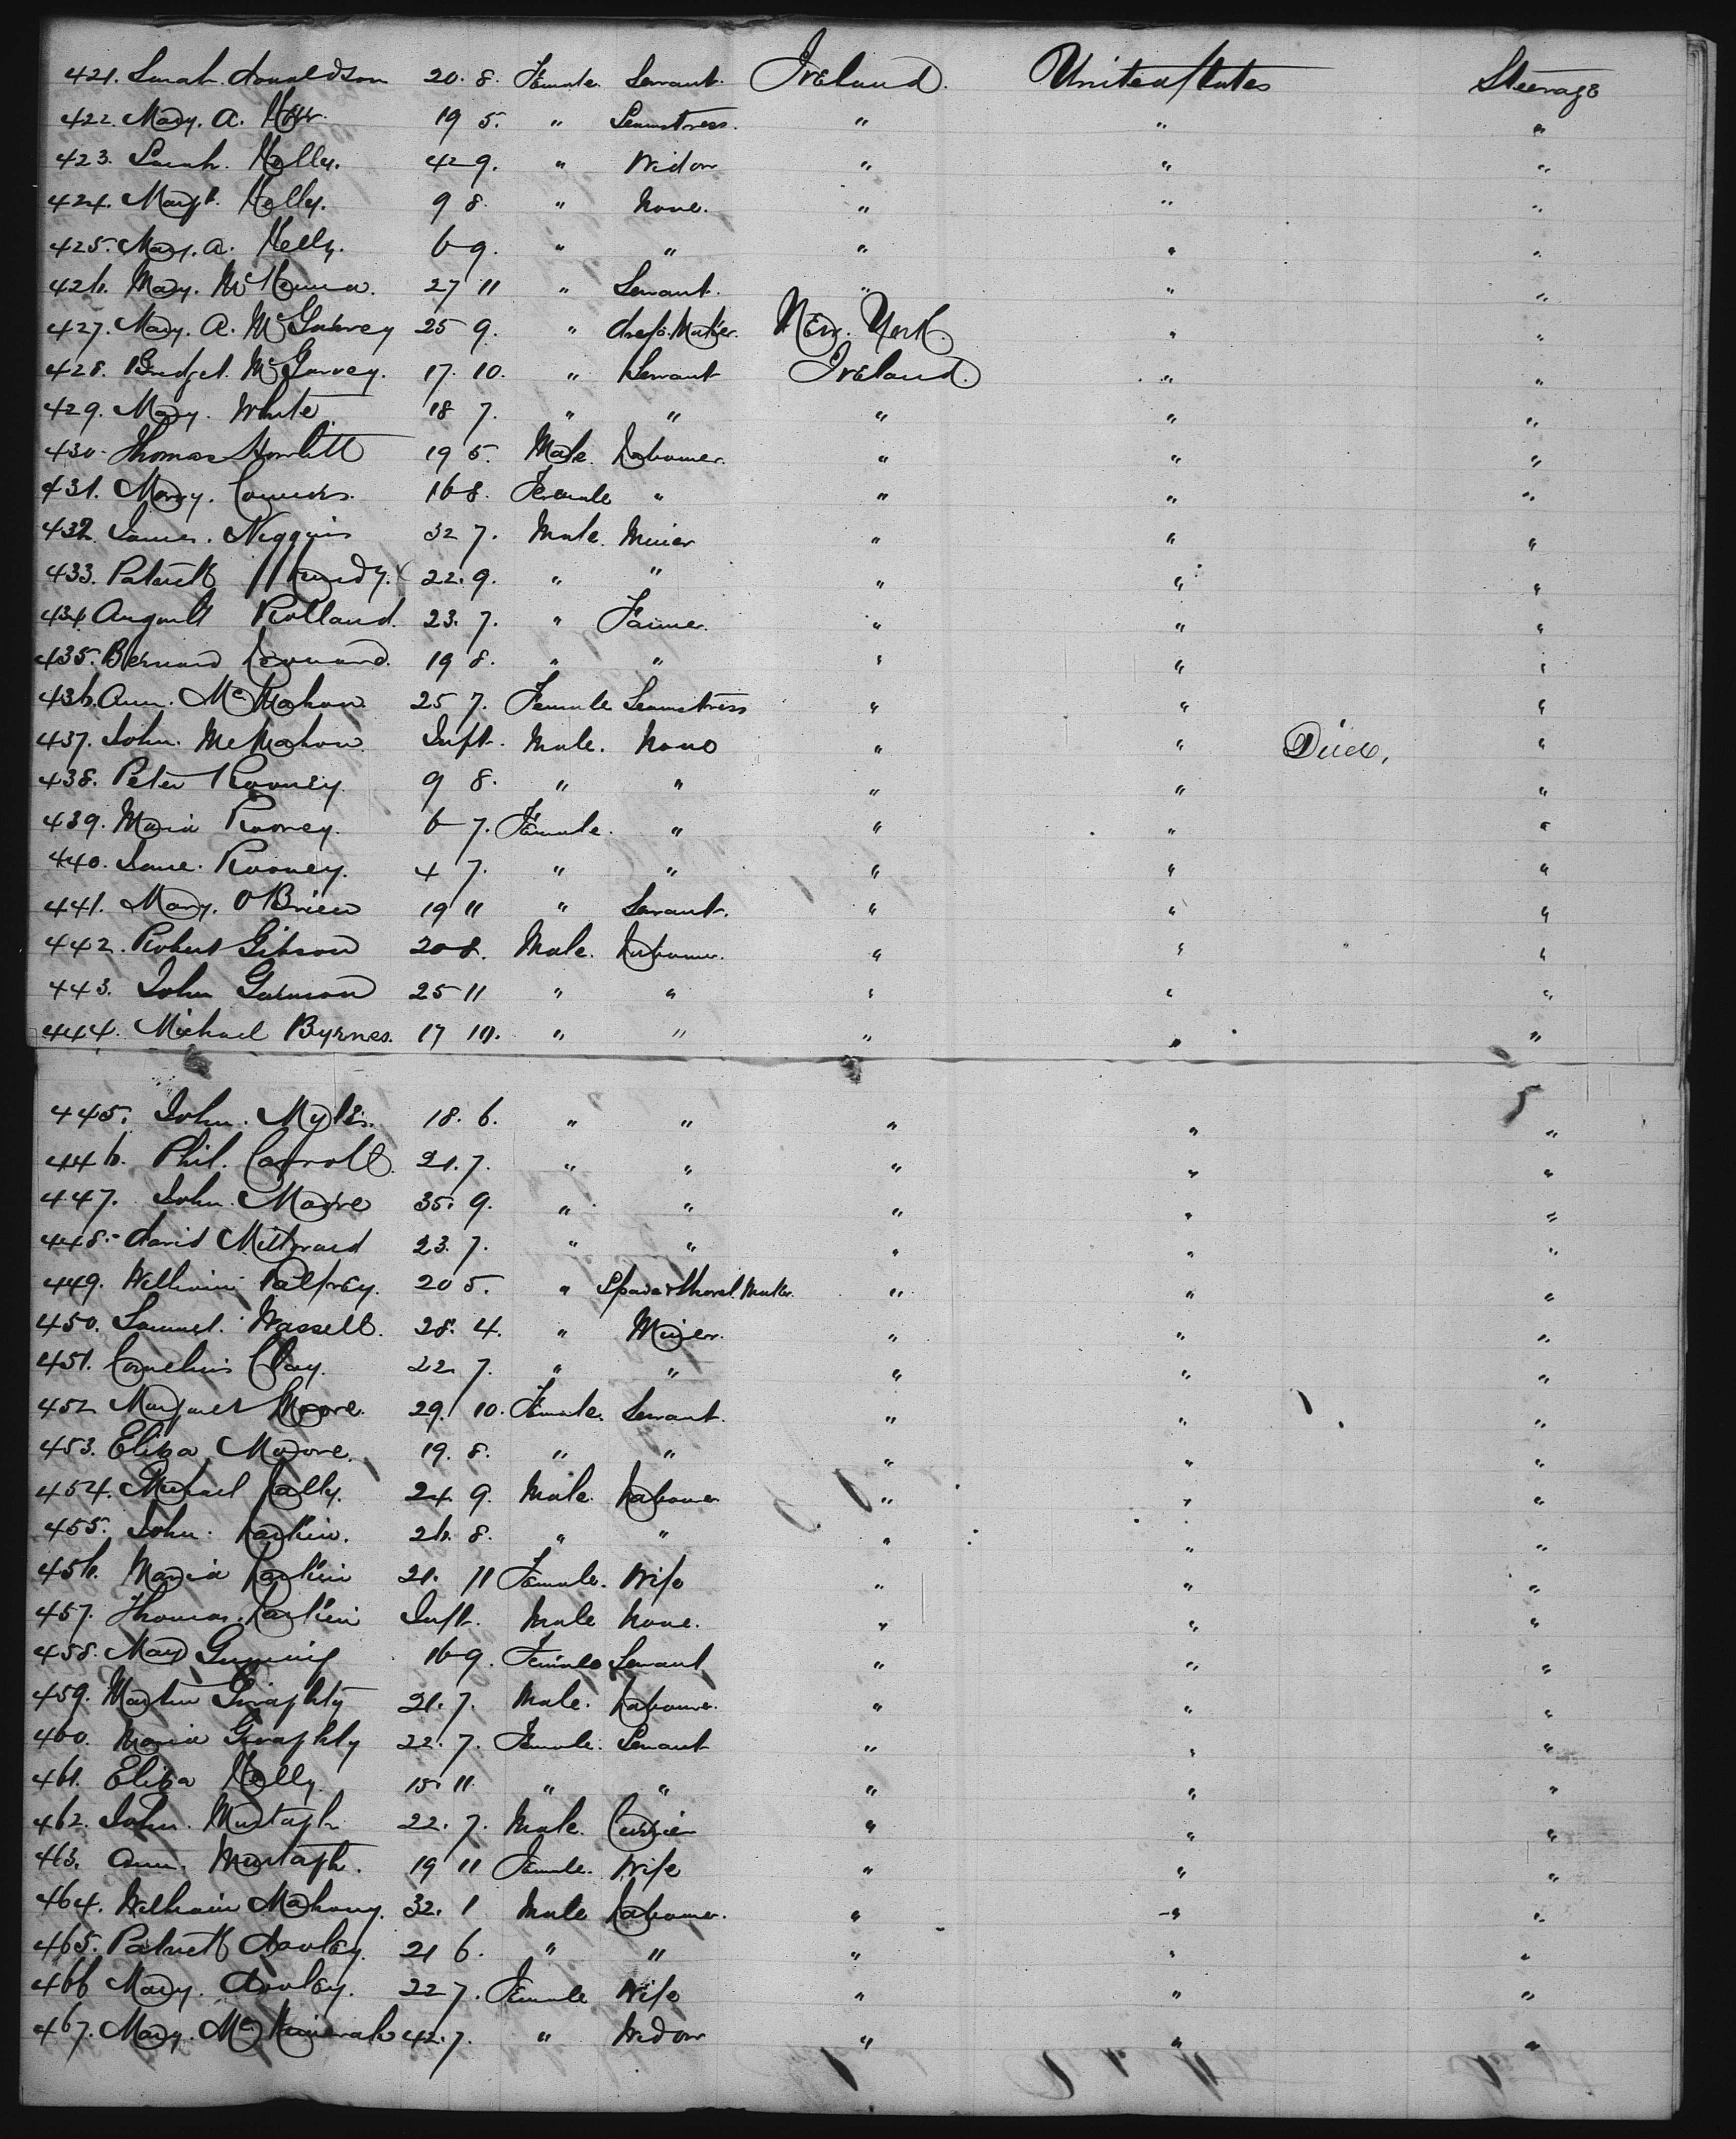 421. Sarah Donaldson 20. 8. Female Servant. Ireland. United States Steerage
422. Mary. A. Kerr. 19 5. " Seamstress. " " "
423. Sarah. Kelly. 42 9. " Widow " " "
424. Margt. Kelly. 9 8. " None. " " "
425. Mary. A. Kelly. 6 9. " " " " "
426. Mary. McKenna. 27 11 " Servant. " " "
427. Mary. A. McGarvey 25 9. " Dress. Maker. New. York. " "
428. Bridget. McGarvey. 17. 10. " Servant Ireland. " "
429. Mary. White 18 7. " " " " "
430. Thomas Howlett 19 5. Male. Labourer. " " "
431. Mary. Connors. 16 8. Female " " " "
432. James. Higgins 32 7. Male. Miner " " "
433. Patrick 22. 9. " " " " "
434. August Rolland. 23. 7. " Farmer. " " "
435. Bernard Leonard. 19 8. " " " " "
436. Ann. McMahon 25 7. Female Seamstress " " "
437. John. McMahon. Inft. Male. None " " Died. "
438. Peter Rooney. 9 8. " " " " "
439. Maria Rooney. 6 7. Female. " " " "
440. Jane. Rooney. 4 7. " " " " "
441. Mary. O'Brien 19 11 " Servant. " " "
442. Robert Gibson 20 8. Male. Labourer. " " "
443. John Garmon 25 11 " " " " "
444. Michael Byrnes. 17 10. " " " " "
445. John. Myles. 18. 6. " " " " "
446. Phil. Carroll. 21. 7. " " " " "
447. John. Moore 35. 9. " " " " "
448. David Millward 23. 7. " " " " "
449. William Palfrey. 20 5. " Spade & Shovel. Maker. " " "
450. Samuel. Wassell. 28. 4. " Miner. " " "
451. Cornelius Clay. 22 7. " " " " "
452 Margaret Moore. 29. 10. Female. Servant. " " "
453. Eliza Moore. 19. 8. " " " " "
454. Michael Lally. 24. 9. Male. Labourer " " "
455. John. Larkin. 26. 8. " " " " "
456. Maria Larkin 21. 11 Female. Wife " " "
457. Thomas. Larkin Inft. Male None. " " "
458. Mary 16 9. Female Servant " " "
459. Martin Giraghty 21. 7. Male. Labourer. " " "
460. Maria Giraghty 22. 7. Female. Servant " " "
461. Eliza Kelly. 15. 11. " " " " "
462. John. Murtagh 22. 7. Male. Currier " " "
463. Ann. Murtagh. 19 11 Female. Wife " " "
464. William Mahony. 32. 1 Male Labourer. " " "
465. Patrick Dooley. 21 6. " " " " "
466 Mary. Dooley. 22 7. Female Wife " " "
467. Mary. 42. 7. " Widow " " "